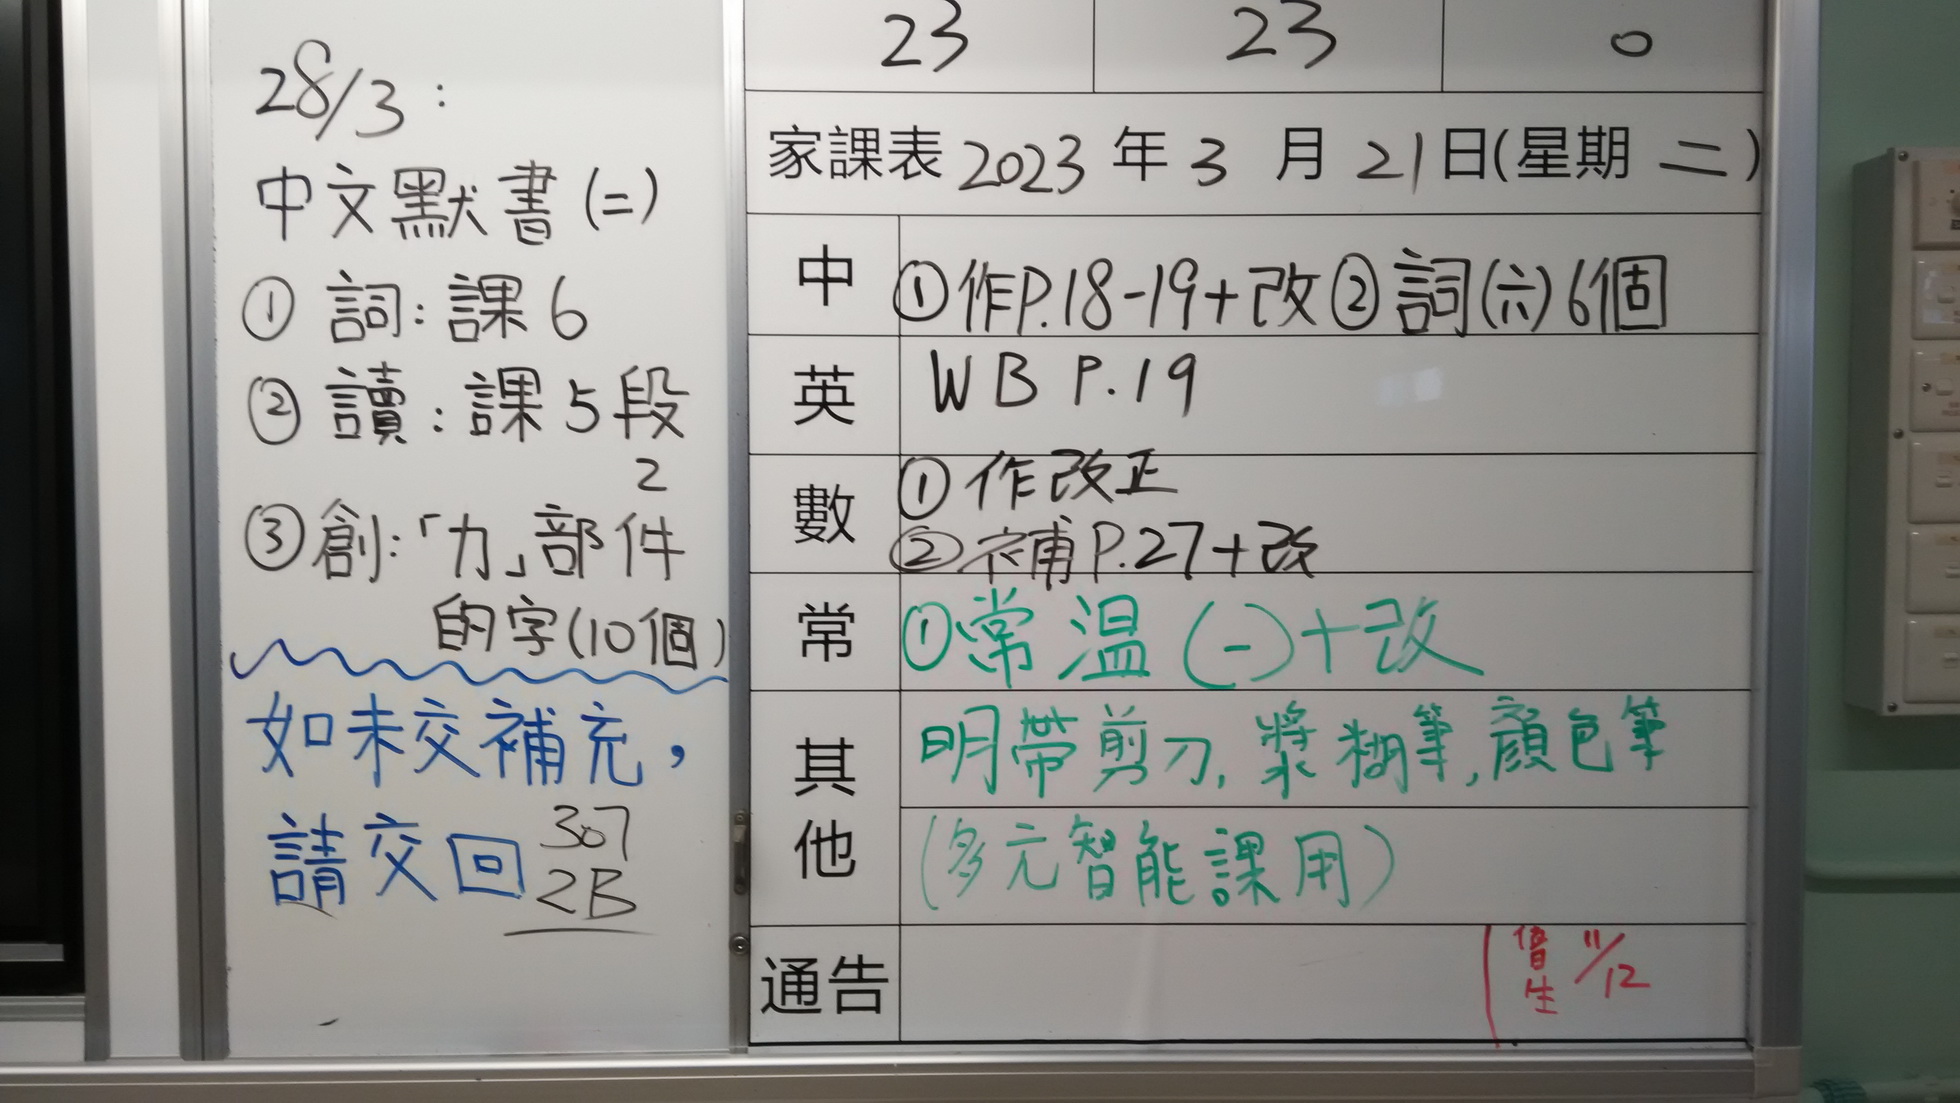 28/3：
中文默書(二)
① 詞：課6
② 讀：課5段
2
③創：「力」部件
的字(10個)
如未交補充，
請交回
307
2B
23 23 0
家課表 2023 年 3 月 21 日(星期 二)
中 ①作P.18-19+改②詞(六)6個
英 WB P.19
數 ①作改正
②補P.27+改
常 ①常溫(一)+改
其他 明帶剪刀, 漿糊筆, 顏色筆
(多元智能課用)
通告
11/12